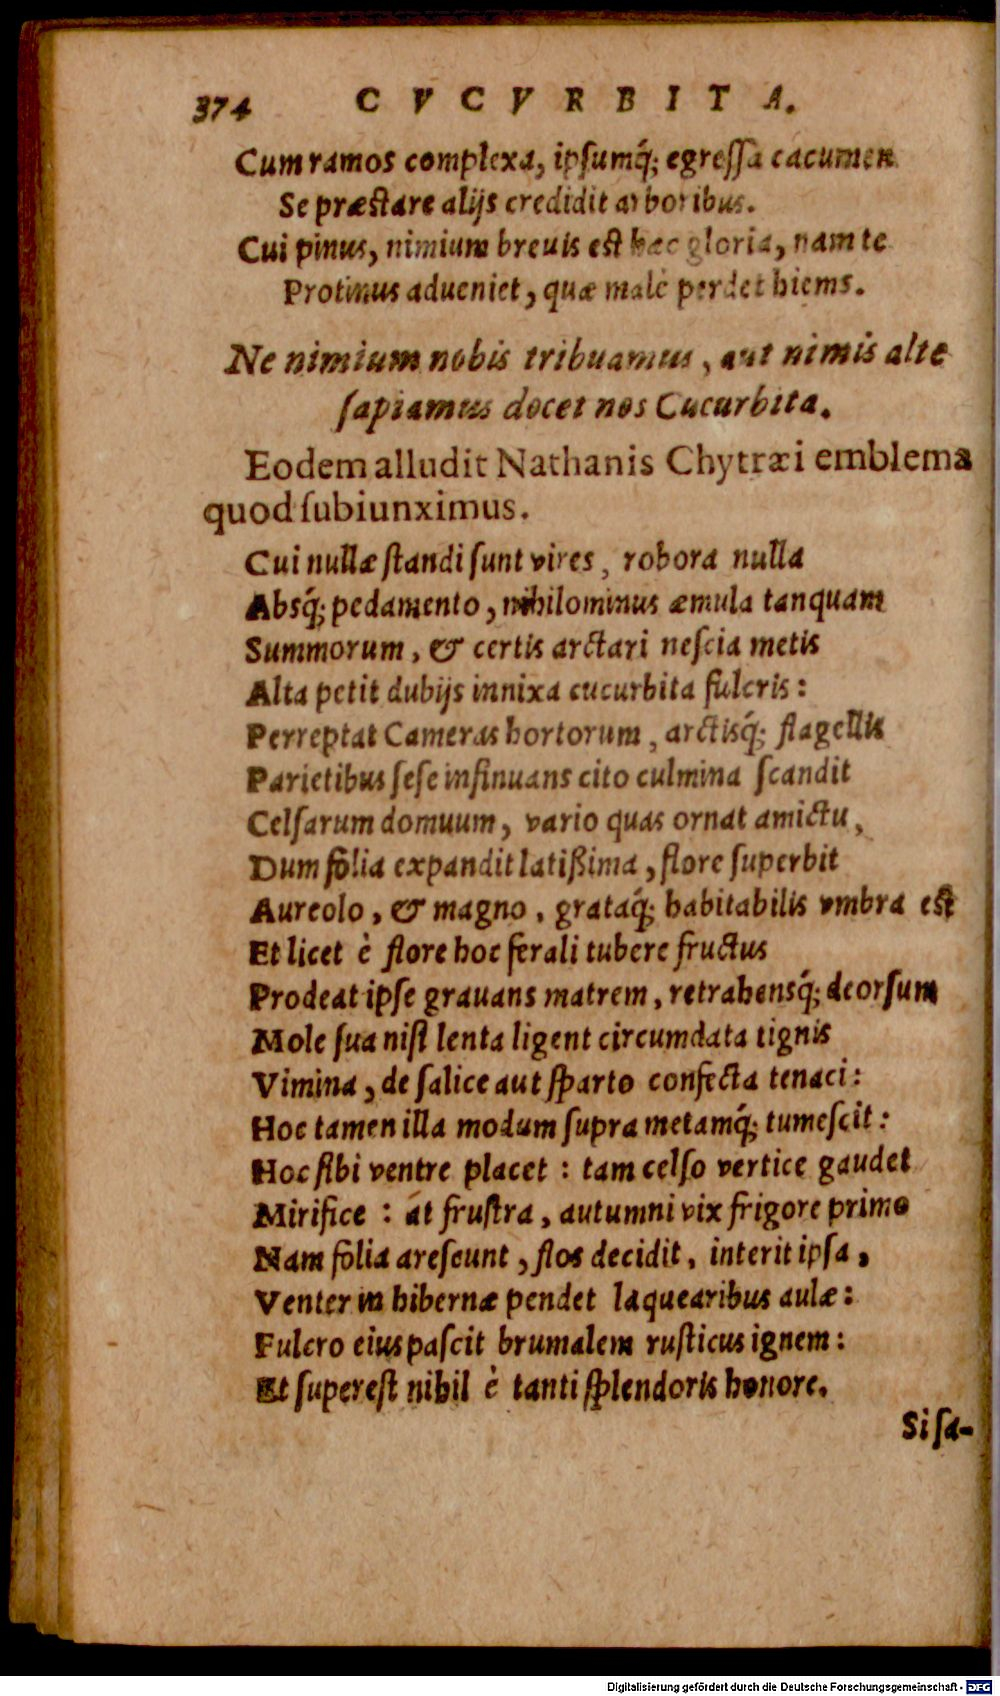 374 CVCVRBITA.
Cum ramos complexa, ipsumq́; egressa cacumen
Se præstare alijs credidit arboribus.
Cui pinus, nimium breuis est hæc gloria, nam te
Protinus adueniet, quæ malè perdet hiems.
Ne nimium nobis tribuamus, aut nimis alte
sapiamus docet nos Cucurbita.
Eodem alludit Nathanis Chytræi emblema
quod subiunximus.
Cui nullæ standi sunt vires, robora nulla
Absq́; pedamento, nihilominus æmula tanquam
Summorum, & certis arctari nescia metis
Alta petit dubijs innixa cucurbita fulcris:
Perreptat Cameras hortorum, arctisq́; flagellis
Parietibus sese insinuans cito culmina scandit
Celsarum domuum, vario quas ornat amictu,
Dum folia expandit latißima, flore superbit
Aureolo, & magno, grataq́; habitabilis vmbra est
Et licet è flore hoc ferali tubere fructus
Prodeat ipse grauans matrem, retrahensq́; deorsum
Mole sua nisi lenta ligent circumdata tignis
Vimina, de salice aut sparto confecta tenaci:
Hoc tamen illa modum supra metamq́; tumescit:
Hoc sibi ventre placet: tam celso vertice gaudet
Mirifice: át frustra, autumni vix frigore primo
Nam folia arescunt, flos decidit, interit ipsa,
Venter in hibernæ pendet laquearibus aulæ:
Fulcro eius pascit brumalem rusticus ignem:
Et superest nihil è tanti splendoris honore.
Si sa-
Digitalisierung gefördert durch die Deutsche Forschungsgemeinschaft - DFG